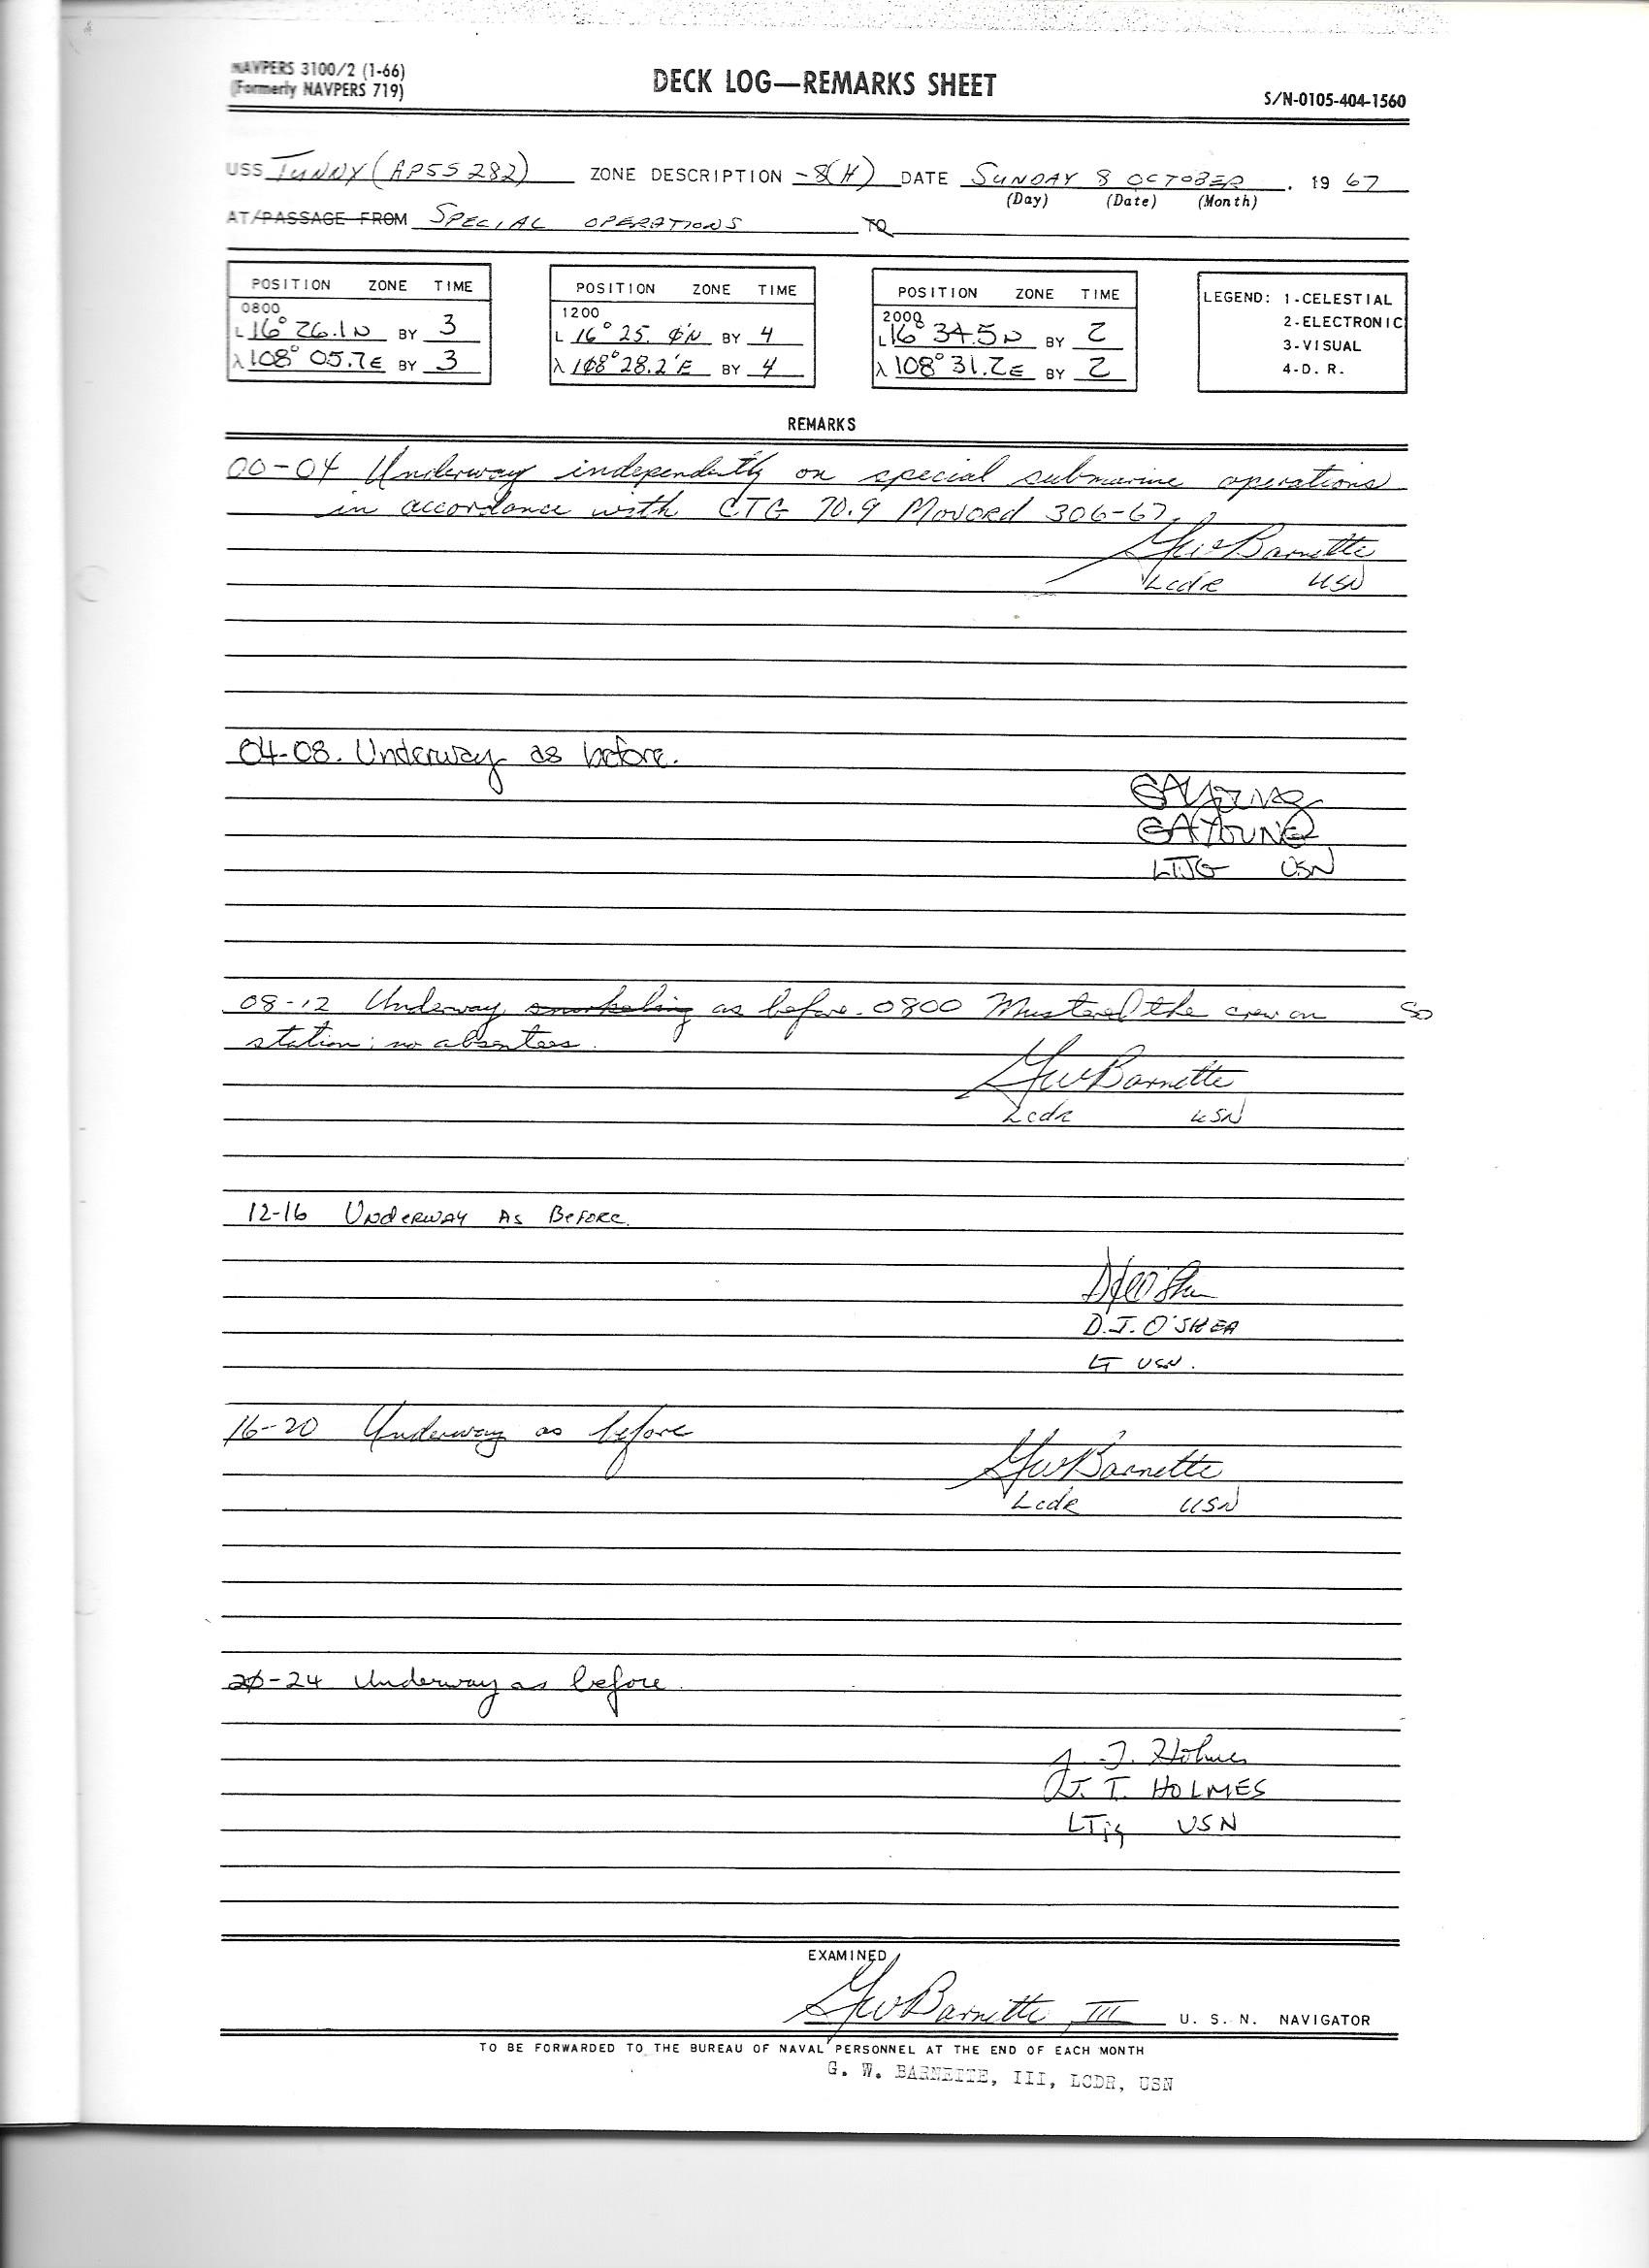 NAVPERS 3100/2 (1-66)
(Formerly NAVPERS 719)
DECK LOG—REMARKS SHEET
S/N-0105-404-1560
USS TUNNY (APSS 282) ZONE DESCRIPTION -8(H) DATE SUNDAY 8 OCTOBER . 19 67
(Day) (Date) (Month)
AT/PASSAGE FROM SPECIAL OPERATIONS TO
POSITION ZONE TIME
0800
L 16° 26.1N BY 3
λ 108° 05.7E BY 3
POSITION ZONE TIME
1200
L 16° 25.0'N BY 4
λ 108° 28.2'E BY 4
POSITION ZONE TIME
2000
L 16° 34.5N BY 2
λ 108° 31.2E BY 2
LEGEND: 1-CELESTIAL
2-ELECTRONIC
3-VISUAL
4-D. R.
REMARKS
00-04 Underway independently on special submarine operations
in accordance with CTG 70.9 Movord 306-67.
GW Barnette
Lcdr USN
04-08. Underway as before.
GAYoung
GAYOUNG
LTJG USN
08-12 Underway snorkeling as before. 0800 Mustered the crew on
station; no absentees.
GW Barnette
Lcdr USN
12-16 UNDERWAY AS BEFORE.
DJ O'Shea
D.J. O'SHEA
LT USN.
16-20 Underway as before
GW Barnette
Lcdr USN
20-24 Underway as before.
J. T. Holmes
J. T. HOLMES
LTjg USN
EXAMINED
GW Barnette III U. S. N. NAVIGATOR
TO BE FORWARDED TO THE BUREAU OF NAVAL PERSONNEL AT THE END OF EACH MONTH
G. W. BARNETTE, III, LCDR, USN